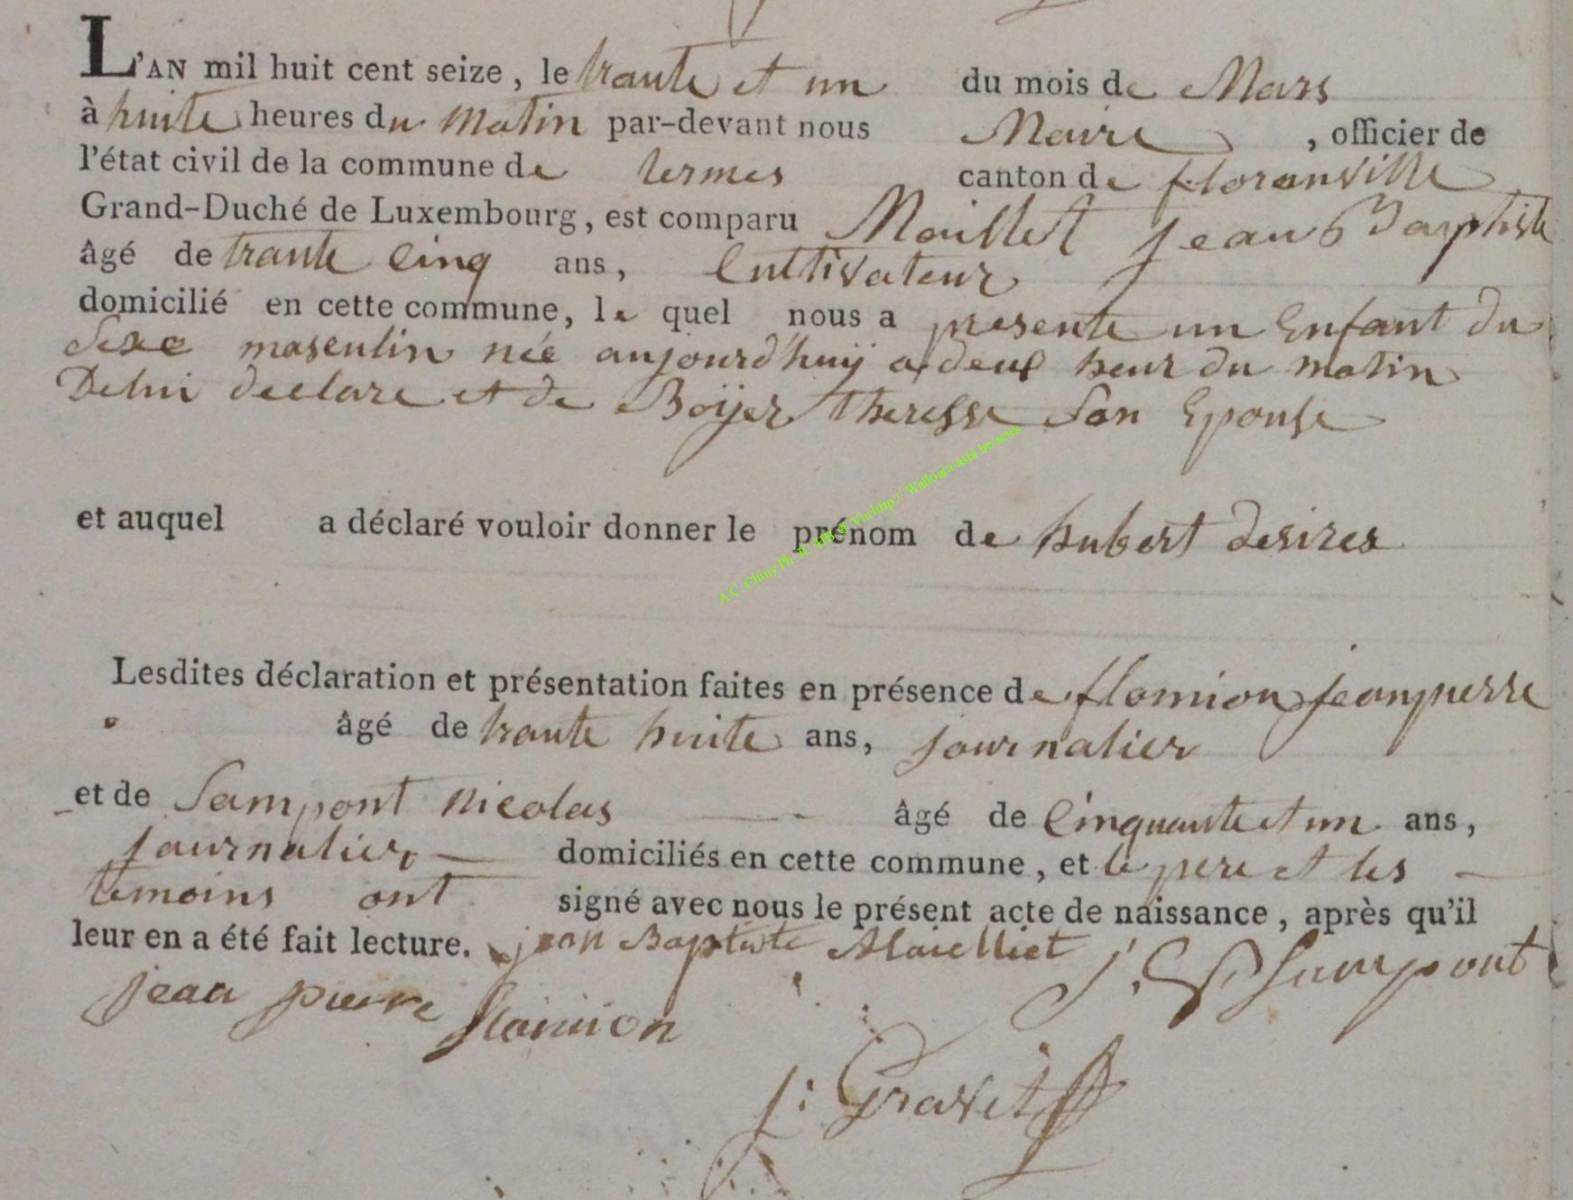 L'AN mil huit cent seize, le trante et un du mois de Mars
à huite heures du matin par-devant nous Maire, officier de
l'état civil de la commune de termes canton de floranville
Grand-Duché de Luxembourg, est comparu Maillet jean Baptiste
âgé de trante cinq ans, Cultivateur
domicilié en cette commune, le quel nous a presente un Enfant du
Sexe masculin née aujourd'huÿ a deux heur du matin
De lui declare et de Boijer theresse son Epouse
et auquel a déclaré vouloir donner le prénom de hubert desires
Lesdites déclaration et présentation faites en présence de flamion jeanpierre
âgé de trante huite ans, journalier
et de Sampont nicolas âgé de Cinquante et un ans,
journalier domiciliés en cette commune, et le pere et les
temoins ont signé avec nous le présent acte de naissance, après qu'il
leur en a été fait lecture. jean Baptiste Maielliet
Sampont
jean pierre flamion
j: Gravet